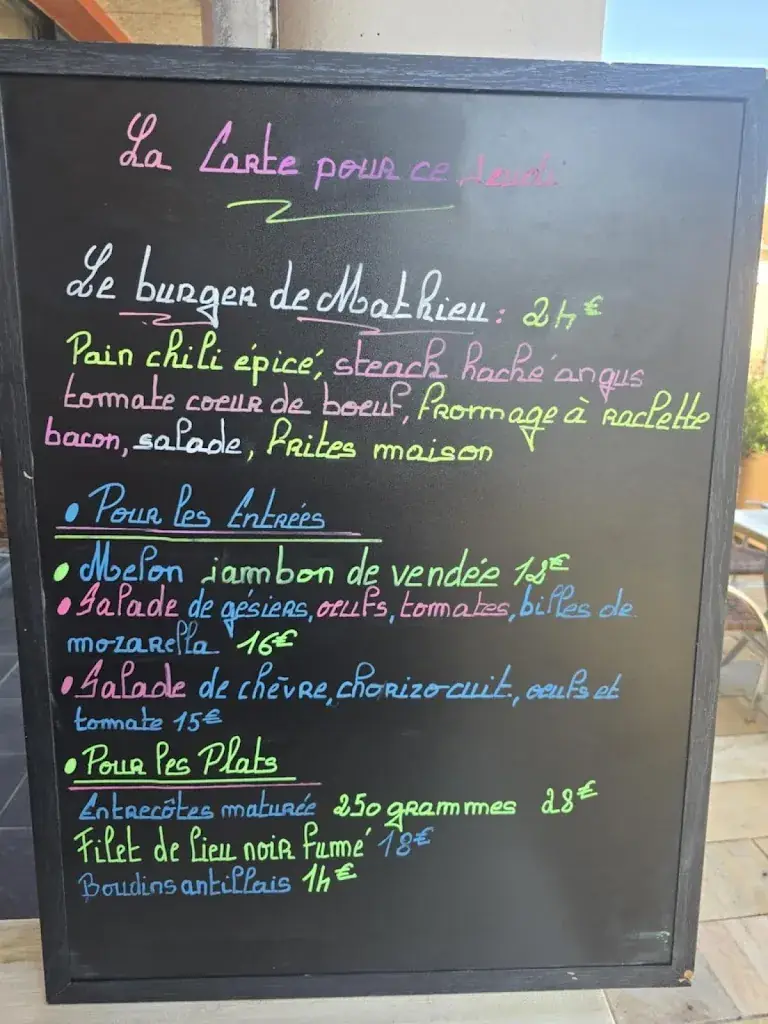 La Carte pour ce Jeudi
Le burger de Mathieu : 24€
Pain chili épicé, steack haché angus
tormate coeur de boeuf, frormage à raclette
bacon, salade, frites maison
• Pour les Entrées
• Melon jambon de vendée 12€
• Salade de gésiers, oeufs, tomates, billes de
mozarella 16€
• Salade de chèvre, chorizo cuit, oeufs et
tomate 15€
• Pour les Plats
Entrecôtes maturée 250 grammes 28€
Filet de lieu noir fumé 18€
Boudins antillais 14€